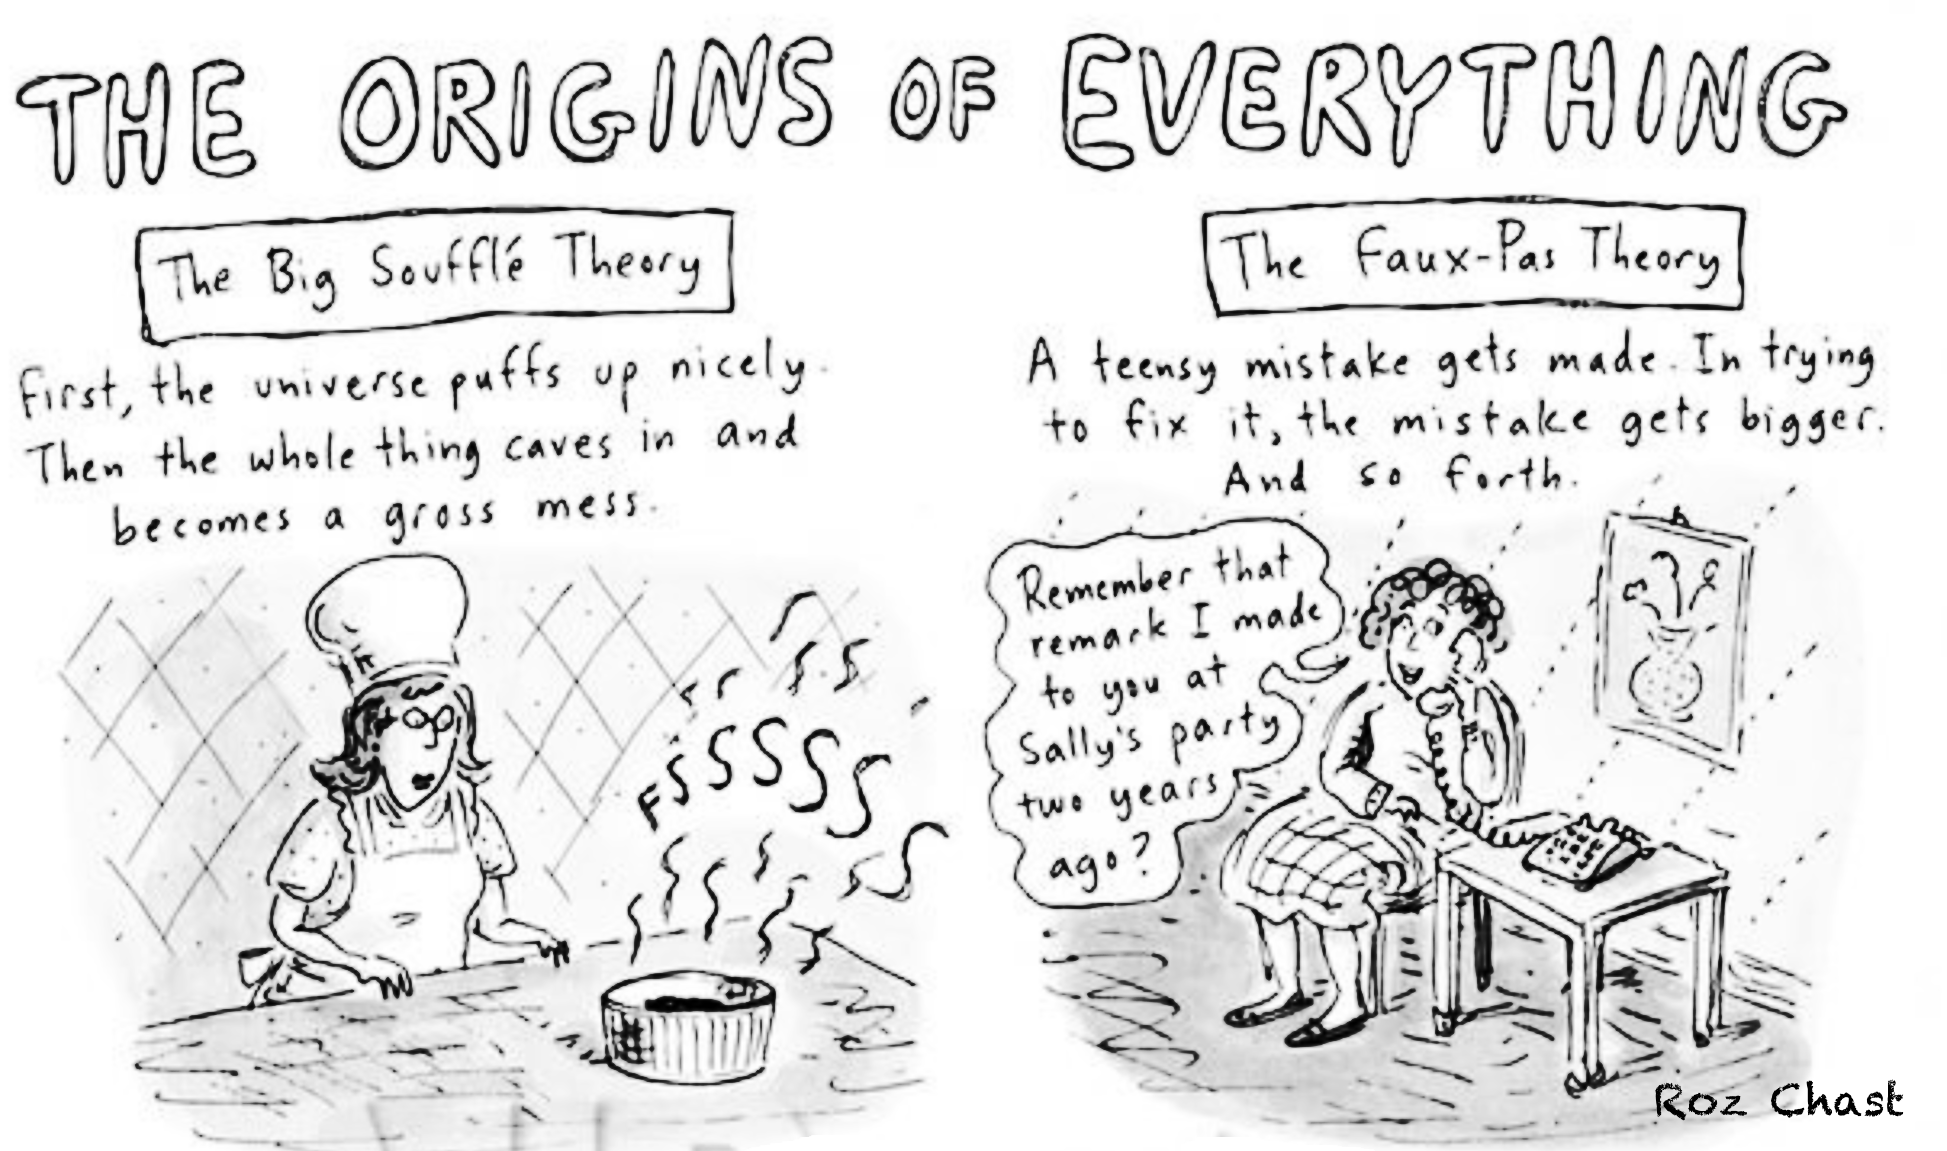 THE ORIGINS OF EVERYTHING
The Big Soufflé Theory
First, the universe puffs up nicely.
Then the whole thing caves in and
becomes a gross mess.
FSSSSS
The Faux-Pas Theory
A teensy mistake gets made. In trying
to fix it, the mistake gets bigger.
And so forth.
Remember that
remark I made
to you at
Sally's party
two years
ago?
Roz Chast